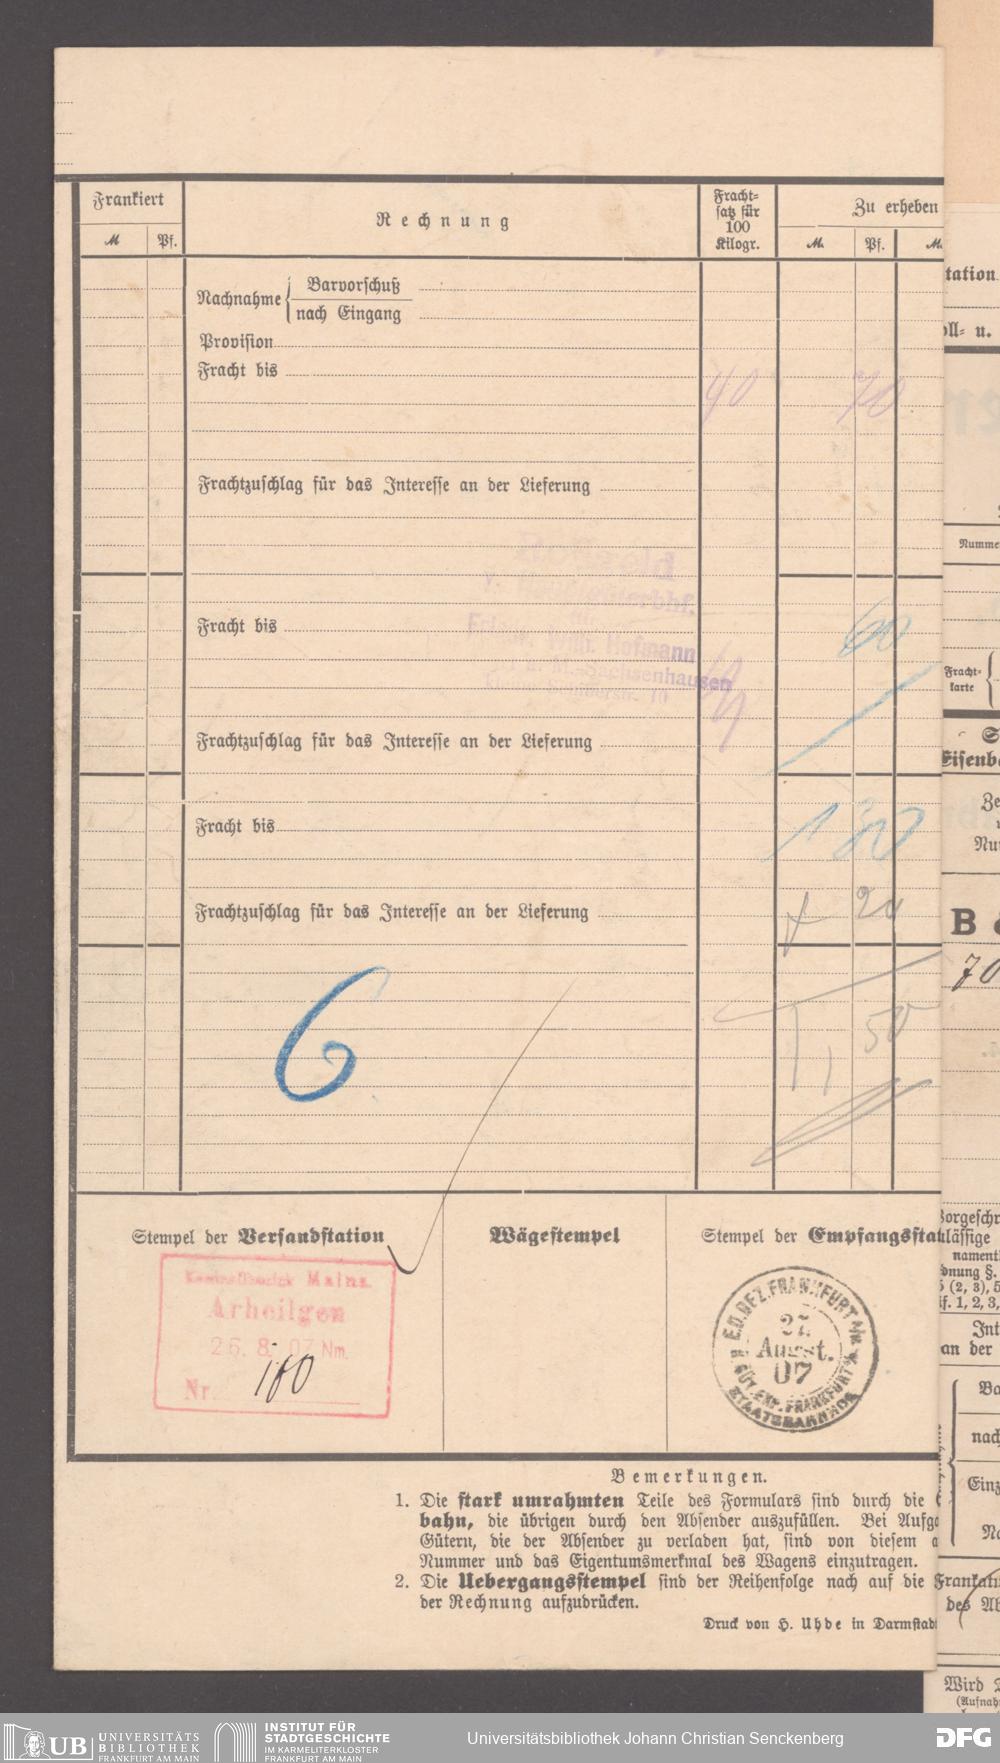 Frankiert
M Pf.
Rechnung
Fracht-
satz für
100
Kilogr.
Zu erheben
M. Pf. M.
Nachnahme { Barvorschuß
nach Eingang
Provision
Fracht bis
40 70
Frachtzuschlag für das Interesse an der Lieferung
Fracht bis
60
Hofmann
M.-Sachsenhausen
Frachtzuschlag für das Interesse an der Lieferung
Fracht bis
1 30
Frachtzuschlag für das Interesse an der Lieferung
20
6
1, 50
Stempel der Versandstation
Wägestempel
Stempel der Empfangssta
Mainz.
Arheilgen
26. 8. 07 Nm.
Nr. 160
E.D.BEZ. FRANKFURT A/M.
27.
August.
07
GÜT. EXP. FRANKFURT
STAATSBAHNHOF
Bemerkungen.
1. Die stark umrahmten Teile des Formulars sind durch die
bahn, die übrigen durch den Absender auszufüllen. Bei Aufga
Gütern, die der Absender zu verladen hat, sind von diesem a
Nummer und das Eigentumsmerkmal des Wagens einzutragen.
2. Die Uebergangsstempel sind der Reihenfolge nach auf die
der Rechnung aufzudrücken.
Druck von H. Uhde in Darmstadt
tation
oll- u.
Numme
Fracht-
karte
Eisenb
Ze
Nu
B
70
Vorgeschr
lässige
nament
dnung §.
5 (2, 3), 5
if. 1, 2, 3,
Int
an der
Ba
nach
Einz
Na
Frankat
des Ab
Wird
(Aufnah
UB UNIVERSITÄTS
BIBLIOTHEK
FRANKFURT AM MAIN
INSTITUT FÜR
STADTGESCHICHTE
IM KARMELITERKLOSTER
FRANKFURT AM MAIN
Universitätsbibliothek Johann Christian Senckenberg
DFG